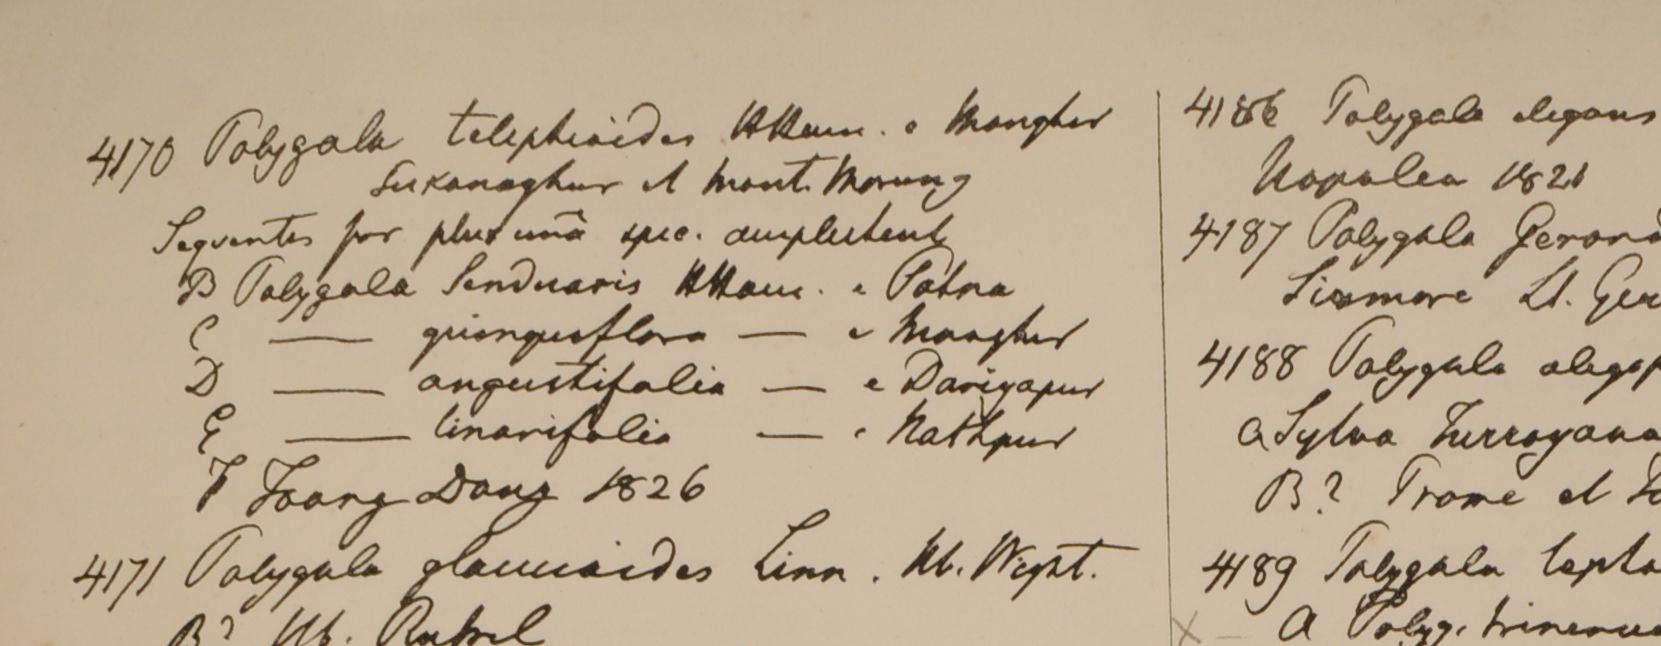 4170 Polygala telephioides HHam. e Monghir
Sukanaghur et Mont. Morung
Sequentes for plurimā spec. amplectent
B Polygala Senduaris HHam. e Patna
C — quinqueflora — e Monghir
D — angustifolia — e Dariyapur
E — linarifolia — e Nathpur
F Toong Dong 1826
4171 Polygala glaucioides Linn. Hb. Wight.
B? Hb.
4186 Polygala elegans
Napalea 1821
4187 Polygala
Sirmore Lt. Ger
4188 Polygala
a Sylva
B? Prome et
4189 Polygala lepta
a Polyg. trinerv